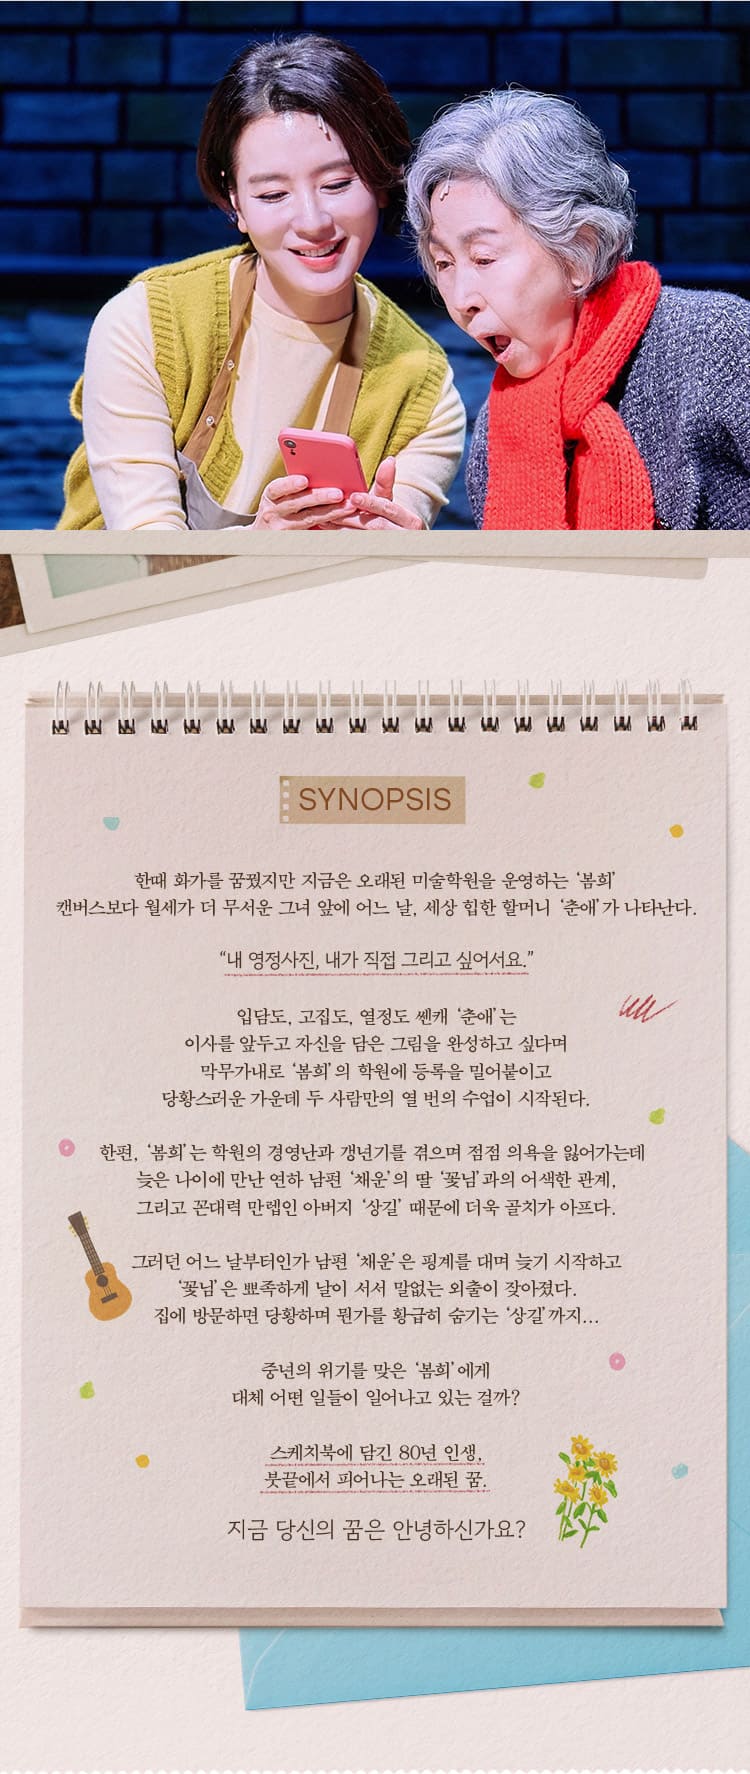 SYNOPSIS
한때 화가를 꿈꿨지만 지금은 오래된 미술학원을 운영하는 ‘봄희’
캔버스보다 월세가 더 무서운 그녀 앞에 어느 날, 세상 힙한 할머니 ‘춘애’가 나타난다.
“내 영정사진, 내가 직접 그리고 싶어서요.”
입담도, 고집도, 열정도 쎈캐 ‘춘애’는
이사를 앞두고 자신을 담은 그림을 완성하고 싶다며
막무가내로 ‘봄희’의 학원에 등록을 밀어붙이고
당황스러운 가운데 두 사람만의 열 번의 수업이 시작된다.
한편, ‘봄희’는 학원의 경영난과 갱년기를 겪으며 점점 의욕을 잃어가는데
늦은 나이에 만난 연하 남편 ‘채운’의 딸 ‘꽃님’과의 어색한 관계,
그리고 꼰대력 만렙인 아버지 ‘상길’ 때문에 더욱 골치가 아프다.
그러던 어느 날부터인가 남편 ‘채운’은 핑계를 대며 늦기 시작하고
‘꽃님’은 뾰족하게 날이 서서 말없는 외출이 잦아졌다.
집에 방문하면 당황하며 뭔가를 황급히 숨기는 ‘상길’까지...
중년의 위기를 맞은 ‘봄희’에게
대체 어떤 일들이 일어나고 있는 걸까?
스케치북에 담긴 80년 인생,
붓끝에서 피어나는 오래된 꿈.
지금 당신의 꿈은 안녕하신가요?